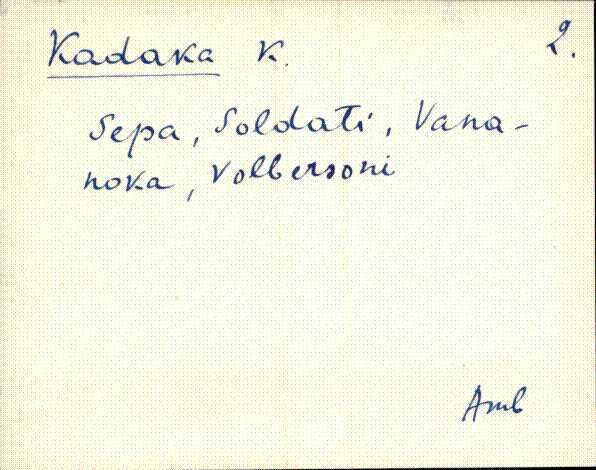 Kadaka K. 2.
Sepa, Soldati, Vana-
noka, Volbersoni
Amb